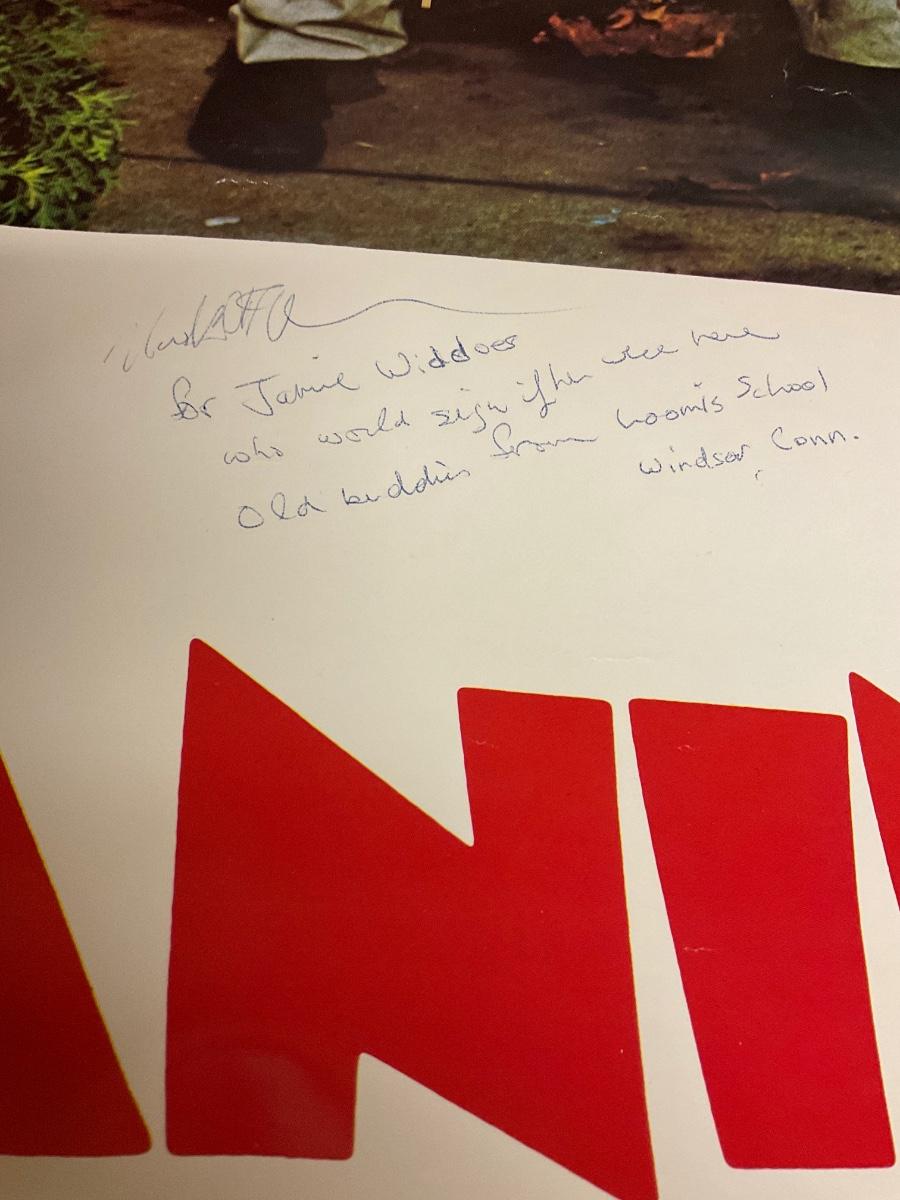 for Jamie Widdoes
who would sign if he were here
Old buddies from Loomis School
Windsor, Conn.
ANI